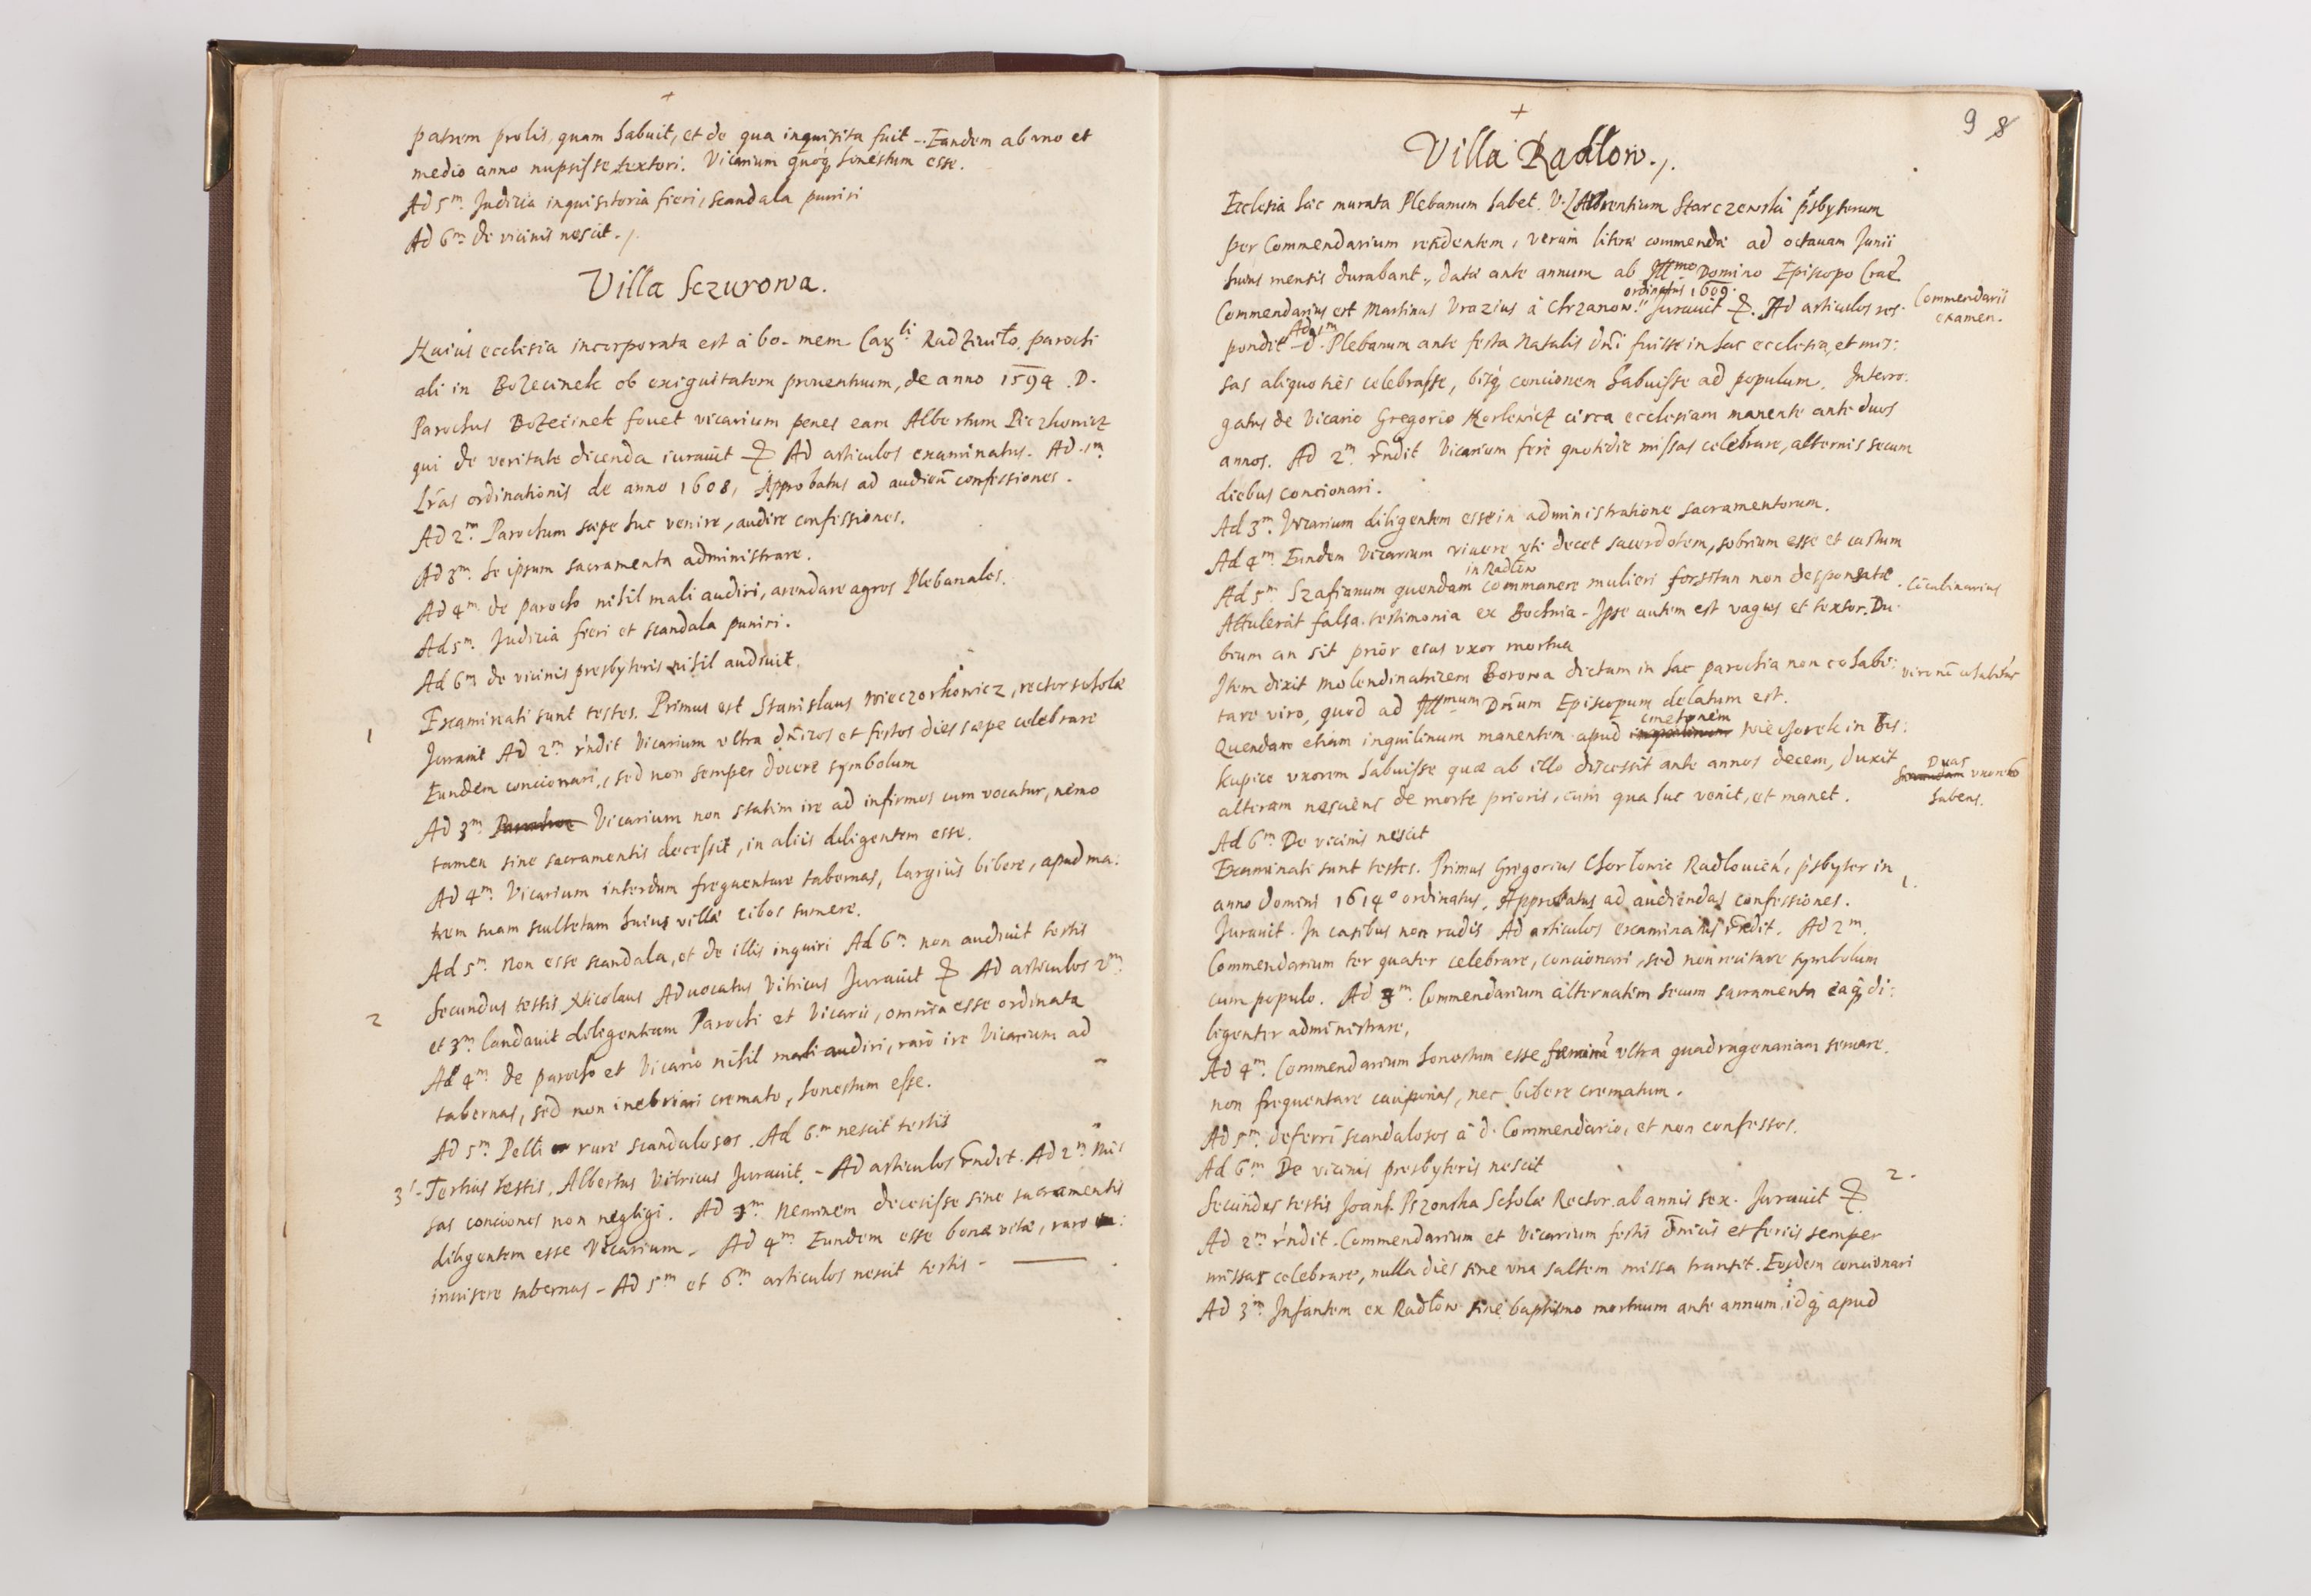 +
patrem prolis, quam habuit, et de qua inquisita fuit - Eandem ab vno et
medio anno nupsisse textori. Vicarium quoq honestum esse.
Ad 5m Judicia inquisitoria fieri, scandala puniri
Ad 6m de vicinis nescit.
Villa Sczurowa.
Huius ecclesia incorporata est à bo. mem. Carli Radziwiło, parochi
ali in Bozecinek ob exiguitatem prouentuum, de anno 1594. D.
Parochus Bozecinek fouet vicarium penes eam Albertum
qui de veritate dicenda iurauit Ad articulos examinatus. Ad 1m
Lras ordinationis de anno 1608, Approbatus ad audien confessiones.
Ad 2m Parochum sæpe huc venire, audire confessiones.
Ad 3m Se ipsum sacramenta administrare.
Ad 4m de parocho nihil mali audiri, arendare agros Plebanales.
Ad 5m Judicia fieri et scandala puniri.
Ad 6m de vicinis presbyteris nihil audiuit.
1 Examinati sunt testes. Primus est Stanislaus Wieczorkowicz, rector scholæ
Jurauit Ad 2m rndit Vicarium vltra dnicos et festos dies sæpe celebrare
Eundem concionari, sed non semper docere symbolum
Ad 3m Vicarium non statim ire ad infirmos cum vocatur, nemo
tamen sine sacramentis decessit, in aliis diligentem esse.
Ad 4m Vicarium interdum frequentare tabernas, largiùs bibere, apud ma:
trem suam scultetam huius villæ cibos sumere.
Ad 5m Non esse scandala, et de illis inquiri Ad 6m non audiuit testis
2 Secundus testis Nicolaus Aduocatus Vitricus Jurauit Ad articulos 2m
et 3m laudauit diligentiam Parochi et Vicarii, omnia esse ordinata
Ad 4m de parocho et Vicario nihil mali audiri, rarò ire Vicarium ad
tabernas, sed non inebriari cremato, honestum esse.
Ad 5m Pelli rure scandalosos. Ad 6m nescit testis
3 Tertius testis, Albertus Vitricus Jurauit. - Ad articulos rndit. Ad 2m Mis
sas conciones non negligi. Ad 3m Neminem decessisse sine sacramentis
diligentem esse Vicarium. Ad 4m Eundem esse bonæ vitæ, raro
inuisere tabernas - Ad 5m et 6m articulos nescit testis -
+
9 8
Villa Radlow.
Ecclesia hæc murata Plebanum habet. V. Starczewski psbyterum
per Commendarium residentem, verùm literæ commendæ ad octauam Junii
huius mensis durabant, datæ ante annum ab Jllmo Domino Episcopo Crac
ordinatus 1609.
Commendarius est Martinus Vrazius à Chrzanow. Jurauit Ad articulos res:
Commendarii
examen.
Ad 1m
pondit d. Plebanum ante festa Natalis Dni fuisse in hac ecclesia, et mis:
sas aliquoties celebrasse, bisq concionem habuisse ad populum. Interro:
gatus de Vicario Gregorio circa ecclesiam manente ante duos
annos. Ad 2m rndit Vicarium fere quotidie missas celebrare, alternis secum
diebus concionari.
Ad 3m Vicarium diligentem esse in administratione sacramentorum.
Ad 4m Eundem Vicarium viuere vti decet sacerdotem, sobrium esse et castum
in Radlow
Ad 5m Szafranum quendam commanere mulieri forsitan non desponsatæ.
Cōcubinarius
Attulerat falsa testimonia ex Bochnia - Jpse autem est vagus et textor. Du:
bium an sit prior eius vxor mortua
Item dixit Molendinatricem Borowa dictam in hac parochia non cohabi:
viro nō cohabitās
tare viro, quod ad Jllmum Dnum Episcopum delatum est.
cmetonem
Quendam etiam inquilinum manentem apud inquilinum Wieczorek in Bis:
kupice vxorem habuisse quæ ab illo discessit ante annos decem, duxit
Duas
vxores
habens.
alteram nesciens de morte prioris, cum qua huc venit, et manet.
Ad 6m De vicinis nescit
Examinati sunt testes. Primus Gregorius Radlouien, psbyter in
1.
anno Domini 1614 ordinatus, Approbatus ad audiendas confessiones.
Jurauit. In casibus non rudis Ad articulos examinatus rndit. Ad 2m
Commendarium ter quater celebrare, concionari, sed non recitare symbolum
cum populo. Ad 3m Commendarium alternatim secum sacramenta eaq di:
ligenter administrare,
Ad 4m Commendarium honestum esse feminā vltra quadragenariam seruare,
non frequentare cauponas, nec bibere crematum.
Ad 5m deferri scandalosos à d. Commendario, et non confessos.
Ad 6m De vicinis presbyteris nescit
2.
Secundus testis Joañ. Pszonka Scholæ Rector ab annis sex. Jurauit
Ad 2m rndit. Commendarium et Vicarium festis dnicis et feriis semper
missas celebrare, nulla dies sine vna saltem missa transit. Eosdem concionari
Ad 3m Infantem ex Radlow sine baptismo mortuum ante annum, idq apud